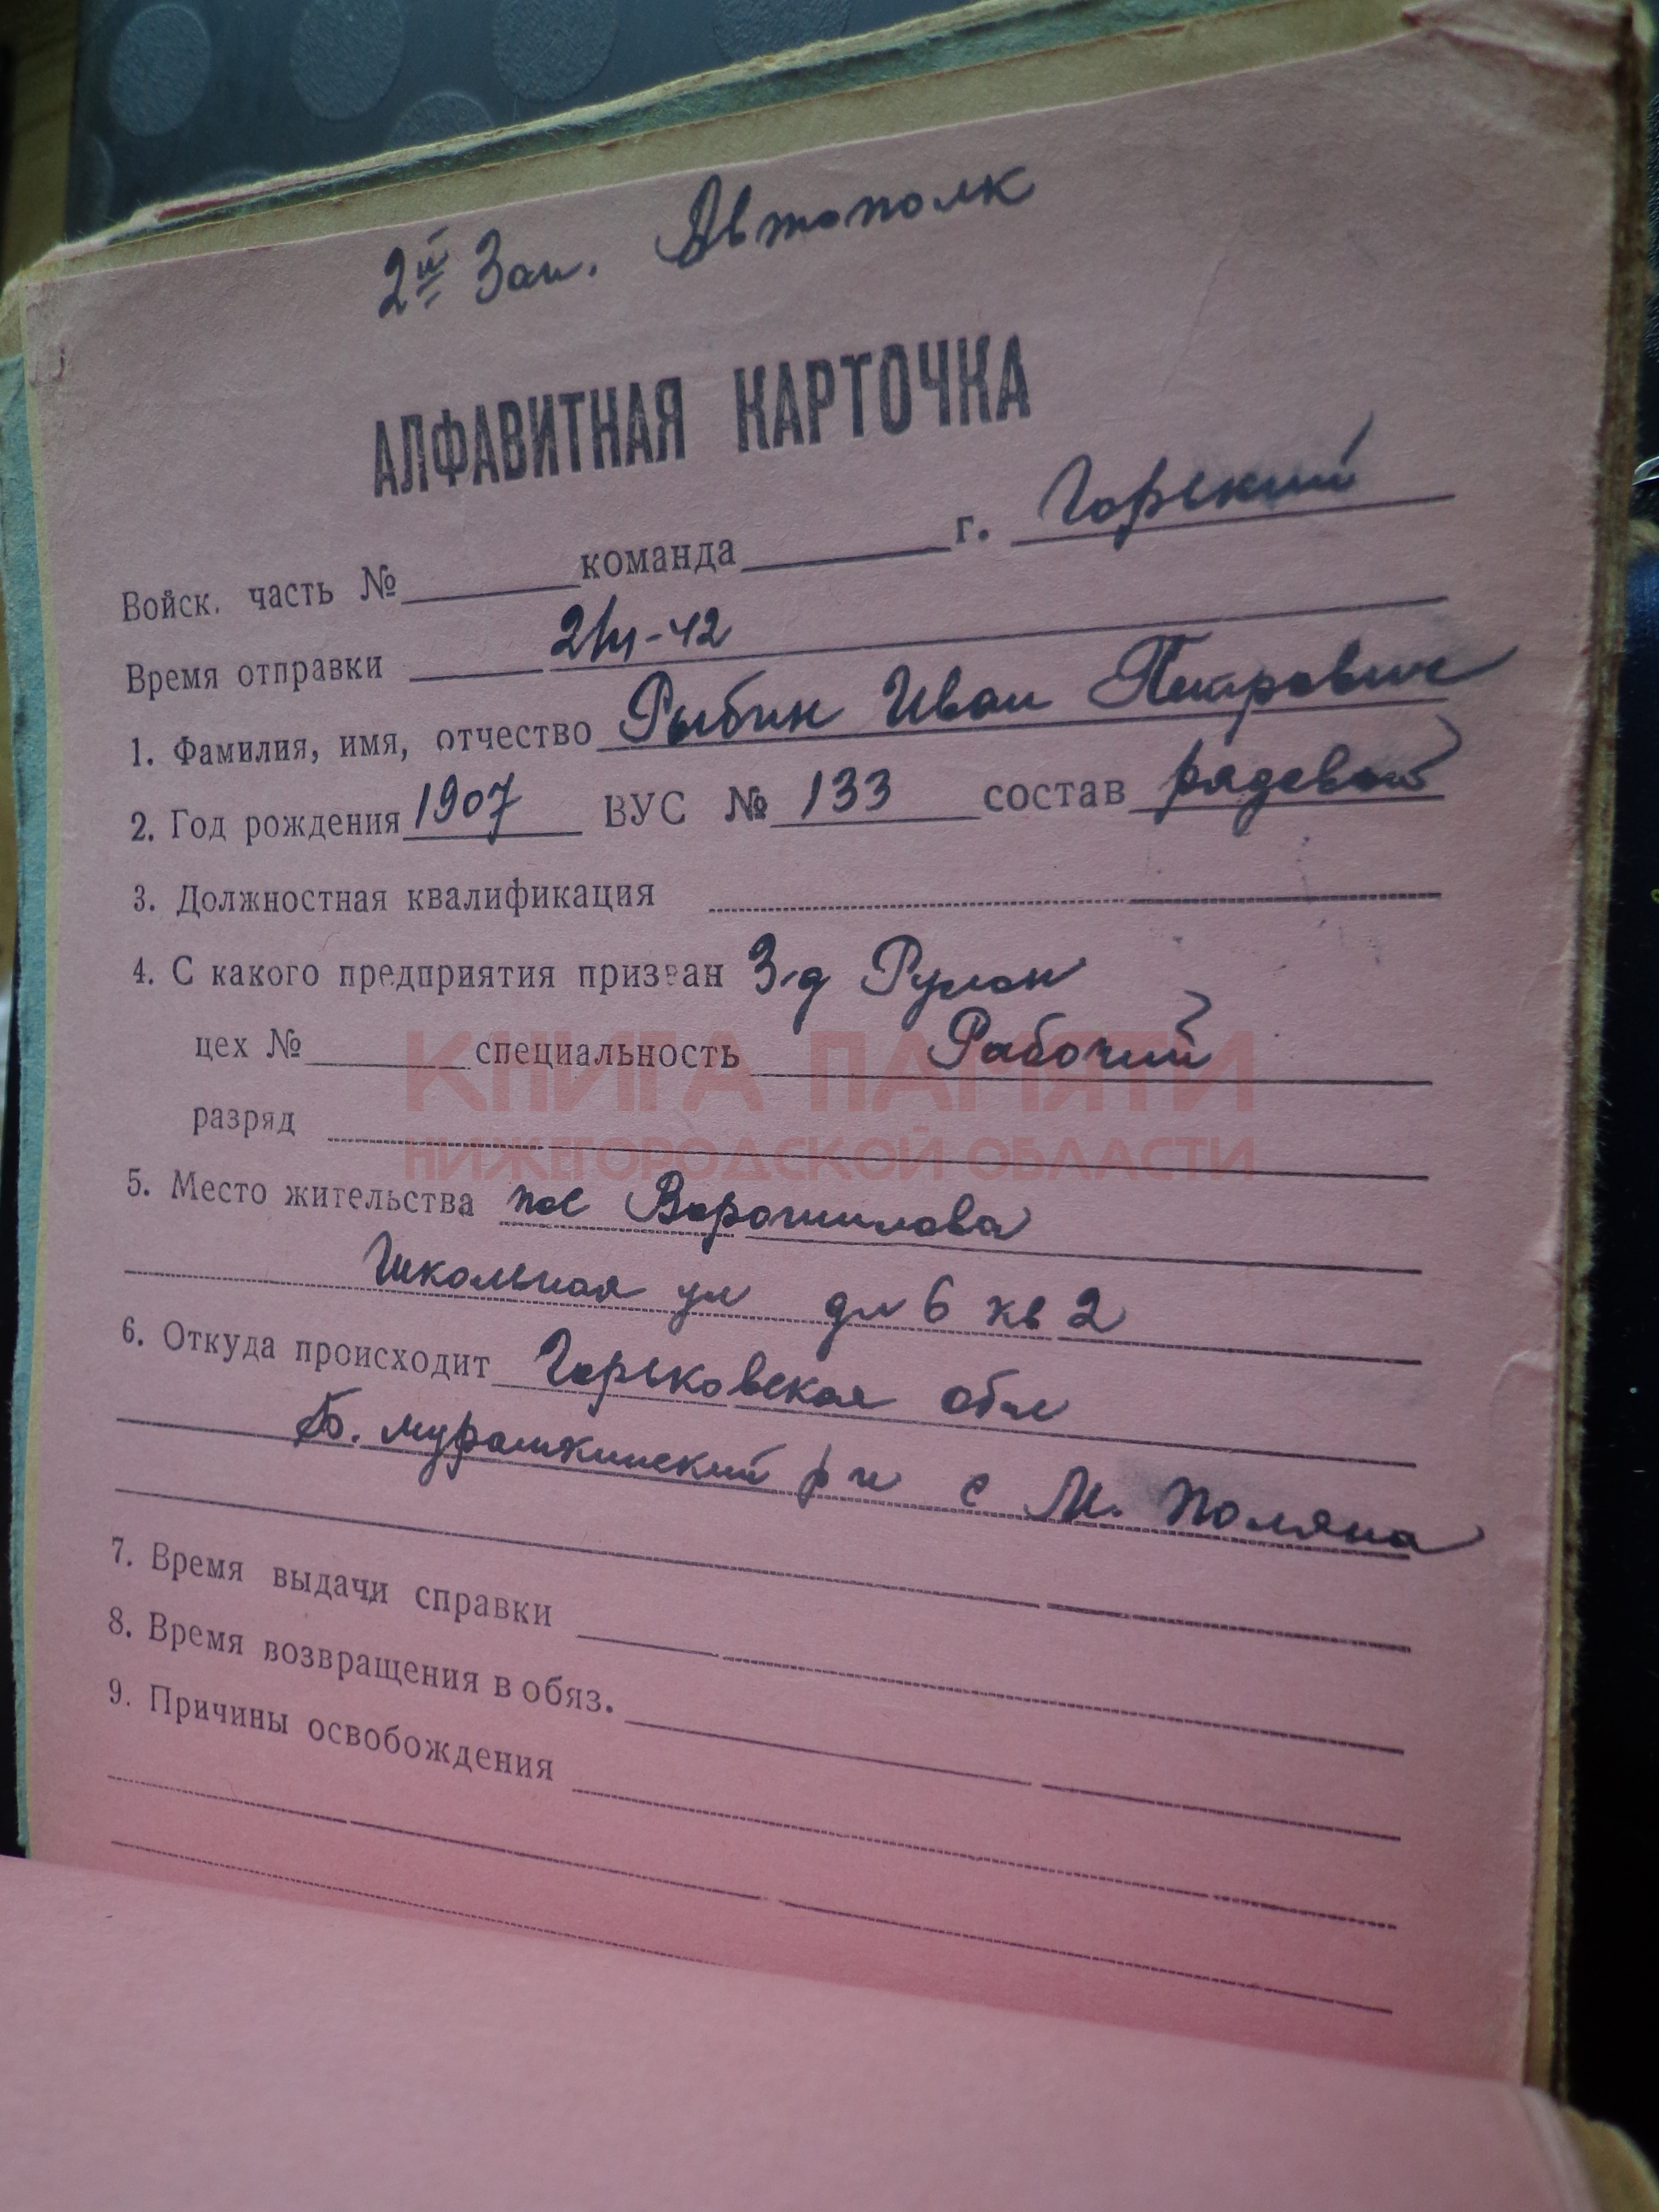 2й Зап. Автополк
АЛФАВИТНАЯ КАРТОЧКА
Войск. часть № команда г. Горький
Время отправки 2/VI-42
1. Фамилия, имя, отчество Рыбин Иван Петрович
2. Год рождения 1907 ВУС № 133 состав рядовой
3. Должностная квалификация
4. С какого предприятия призван З-д Румон
цех № специальность Рабочий
КНИГА ПАМЯТИ
разряд
НИЖЕГОРОДСКОЙ ОБЛАСТИ
5. Место жительства пос Ворошилова
Школьная ул дм 6 кв 2
6. Откуда происходит Горьковская обл
Б. Мурашкинский р н с М. Поляна
7. Время выдачи справки
8. Время возвращения в обяз.
9. Причины освобождения